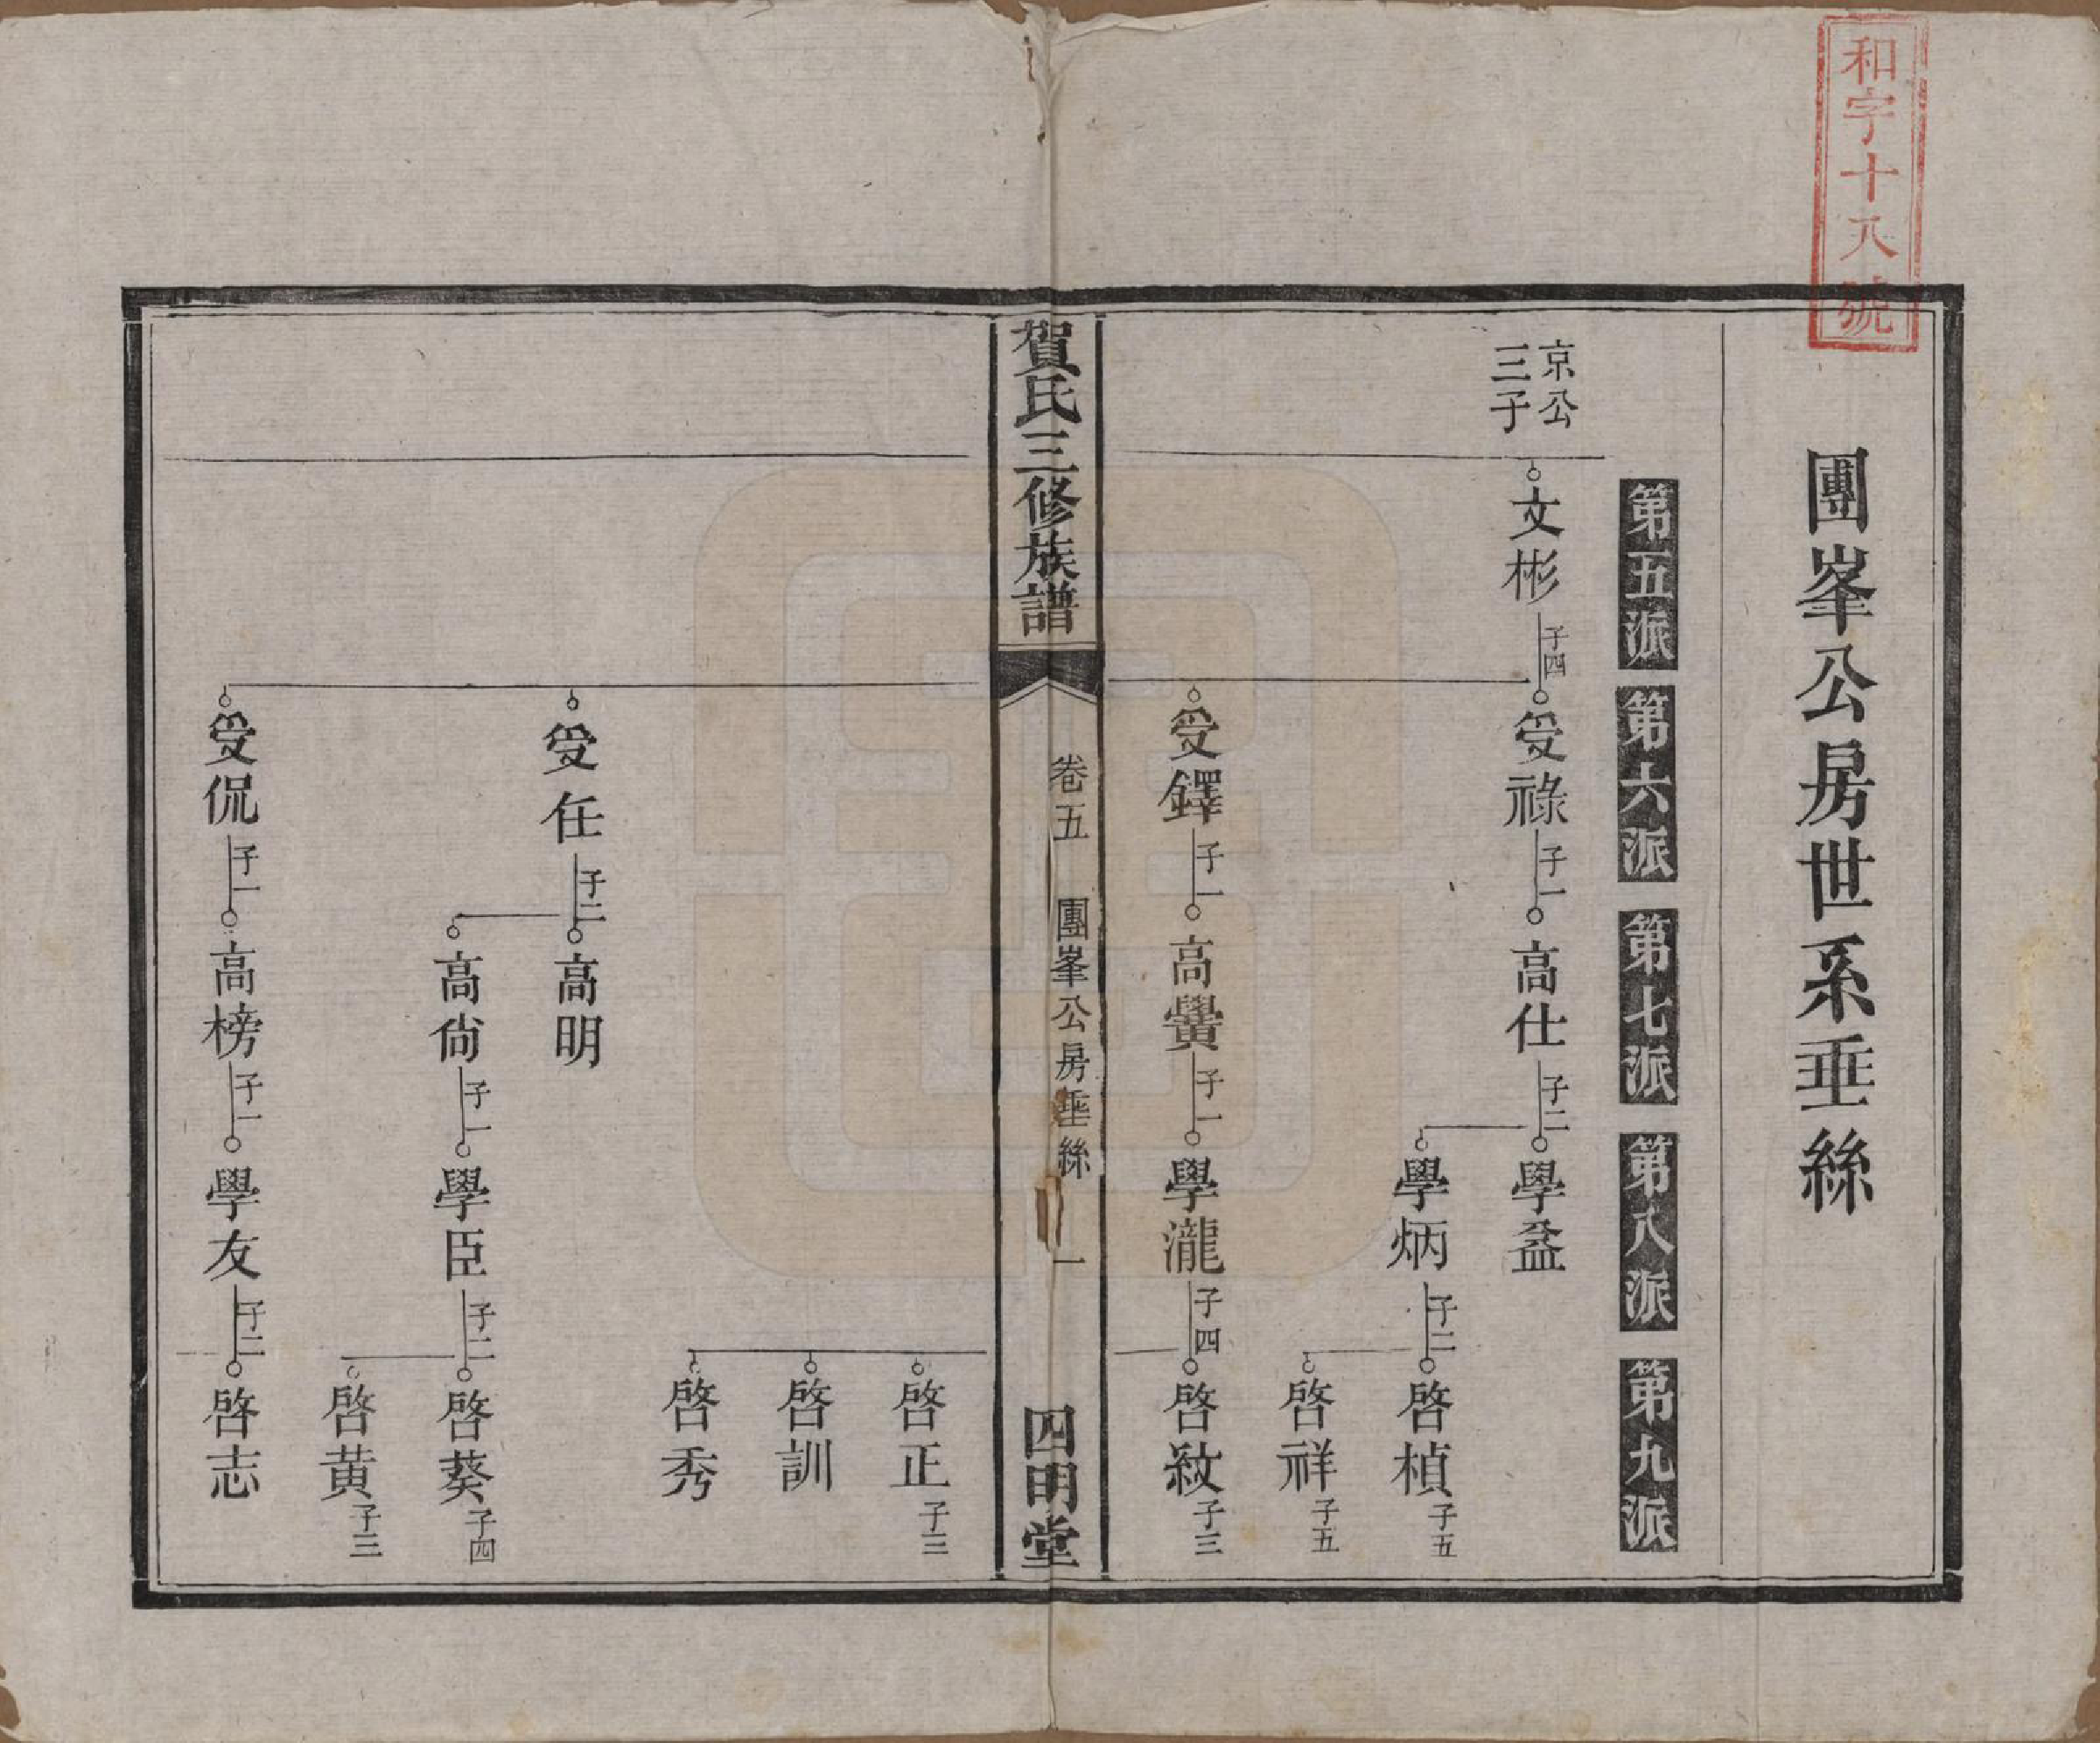 和字十八號
團峯公房世系垂絲
第五派
第六派
第七派
第八派
第九派
京公
三子
文彬
子四
受祿
子一
高仕
子二
學益
學炳
子二
啓楨
子五
啓祥
子五
受鐸
子一
高黌
子一
學瀧
子四
啓紋
子三
賀氏三修族譜
卷五
團峯公房垂絲
一
四明堂
啓正
子三
啓訓
啓秀
受任
子二
高明
高尙
子一
學臣
子二
啓葵
子四
啓黃
子三
受侃
子一
高榜
子一
學友
子二
啓志